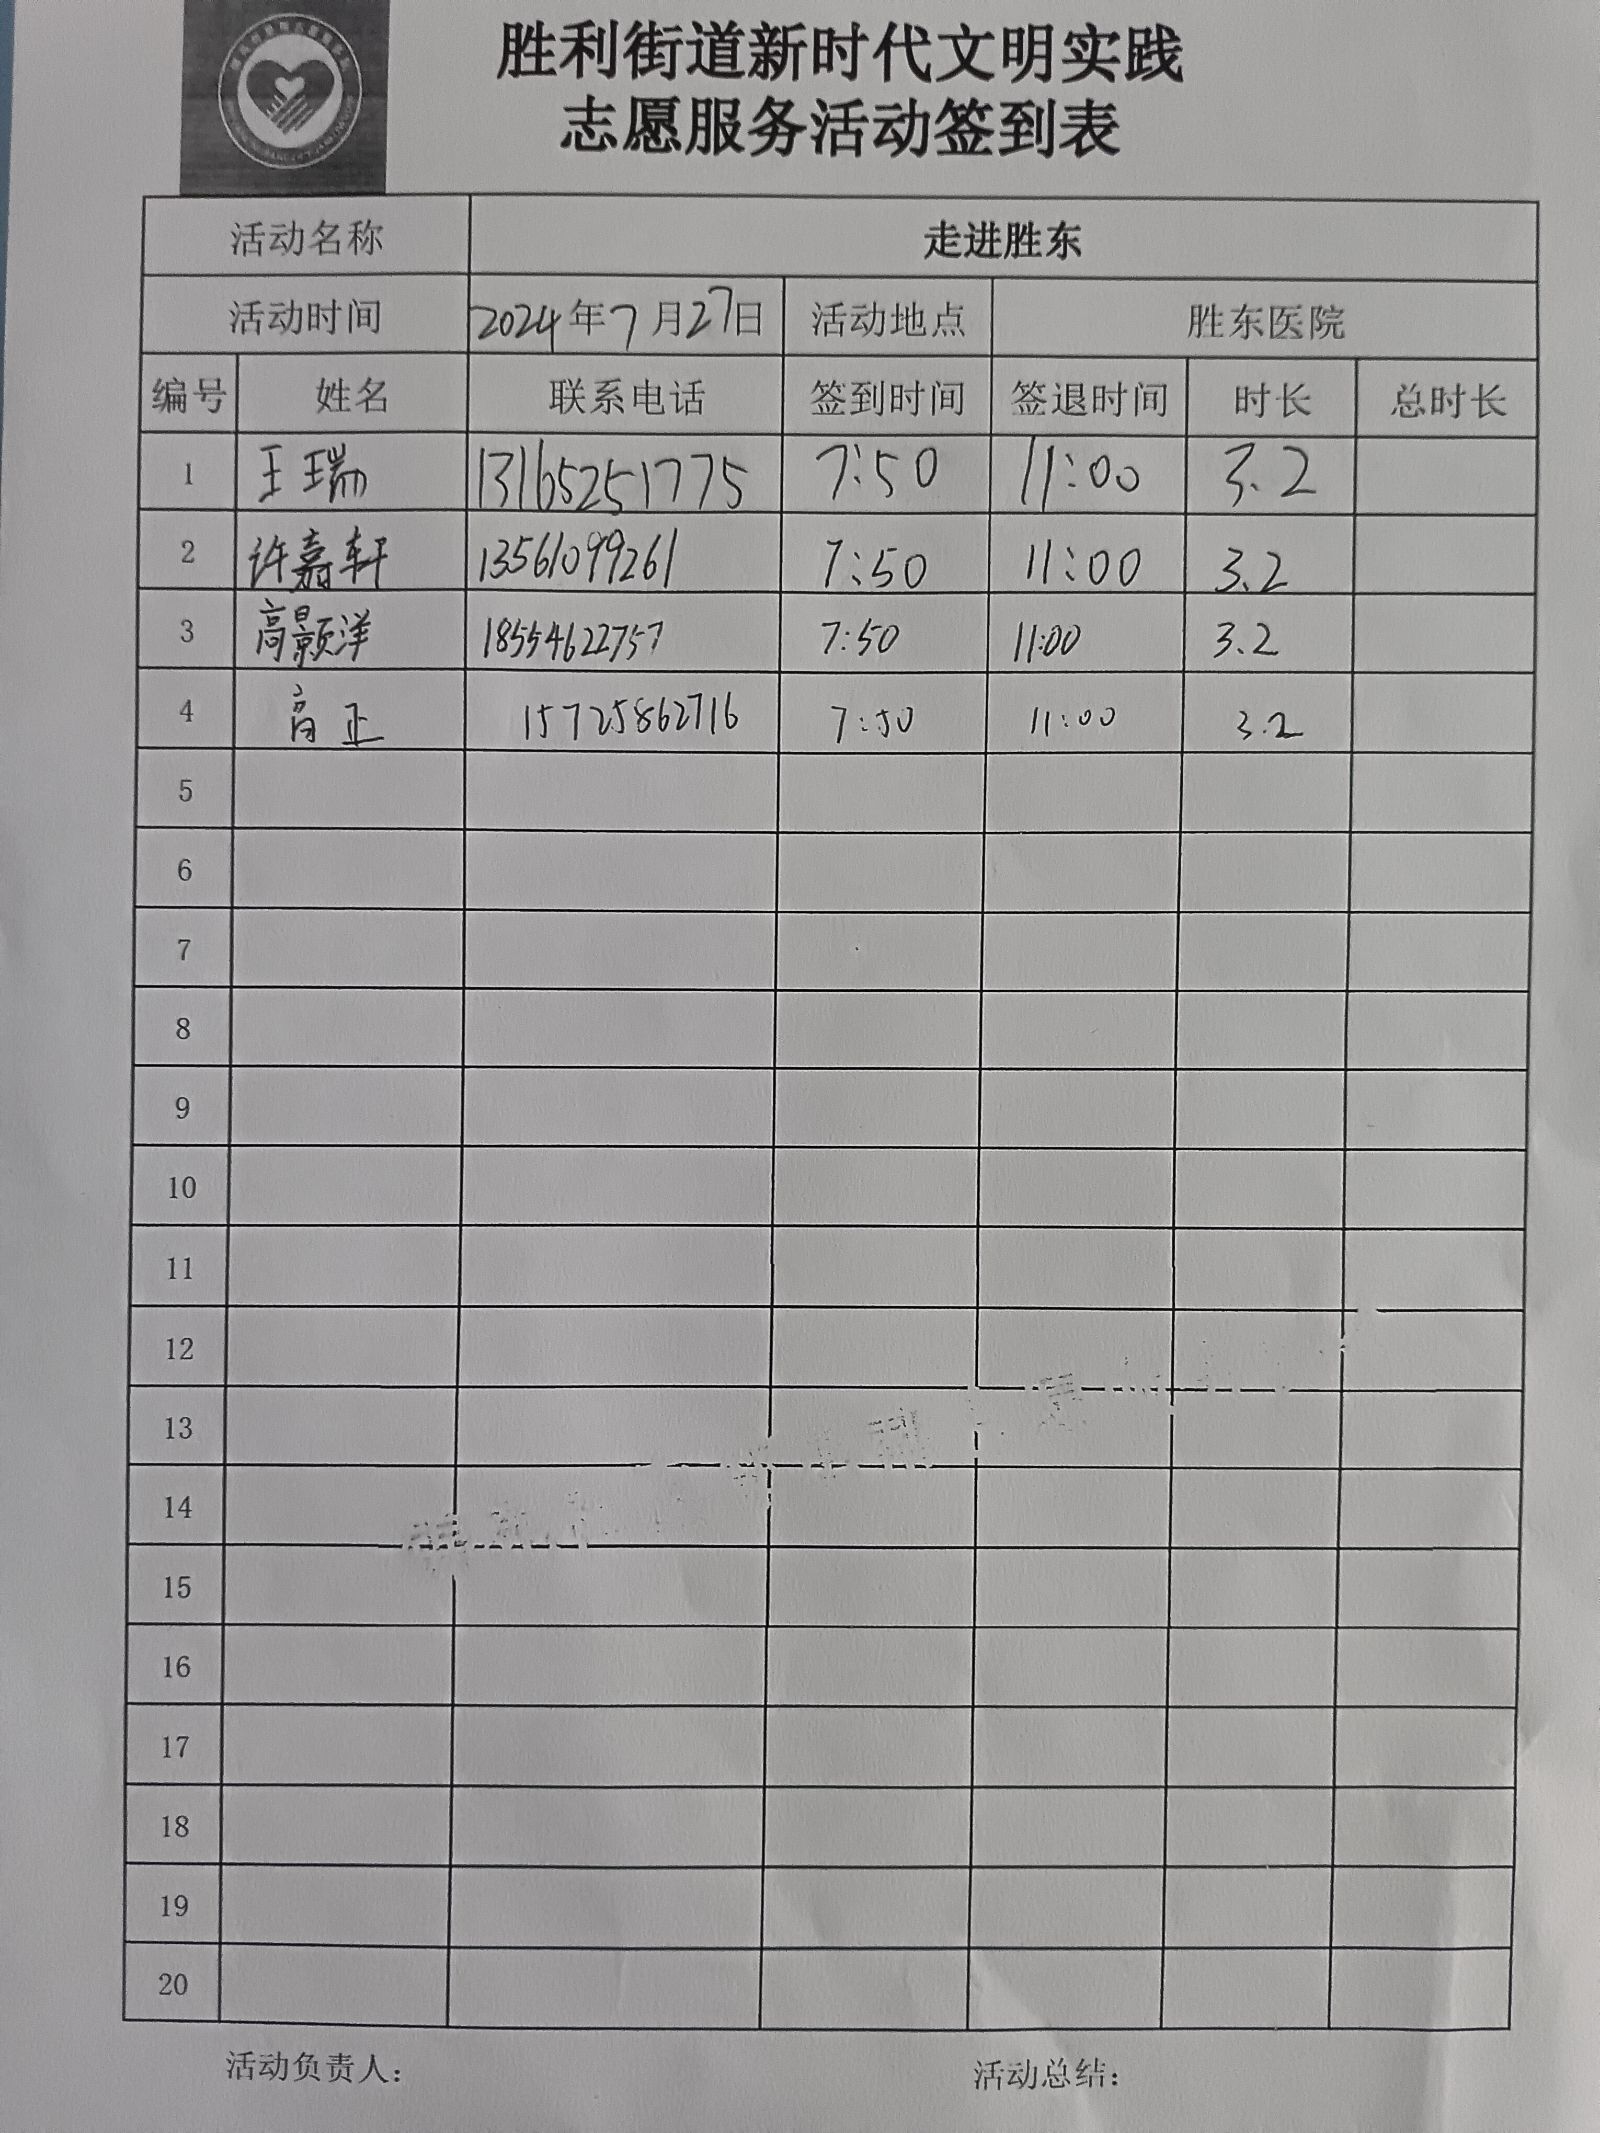 胜利街道新时代文明实践
志愿服务活动签到表
活动名称 走进胜东
活动时间 2024年7月27日 活动地点 胜东医院
编号 姓名 联系电话 签到时间 签退时间 时长 总时长
1 王瑞 13165251775 7:50 11:00 3.2
2 许嘉轩 13561099261 7:50 11:00 3.2
3 高颢洋 18554622757 7:50 11:00 3.2
4 高正 15725862716 7:50 11:00 3.2
5
6
7
8
9
10
11
12
13
14
15
16
17
18
19
20
活动负责人： 活动总结：